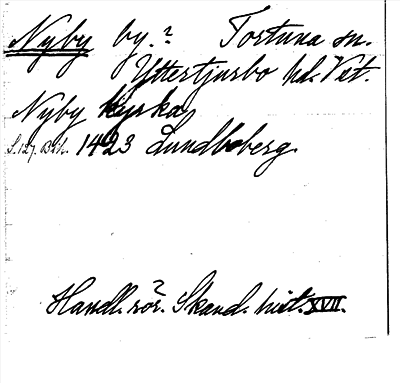 Nyby by.? Tortuna sn.
Yttertjurbo hd. Vst.
Nyby kyrka
S. 127. Bih. 1423 Lundboberg.
Handl. rör. ? Skand. hist. XVII.